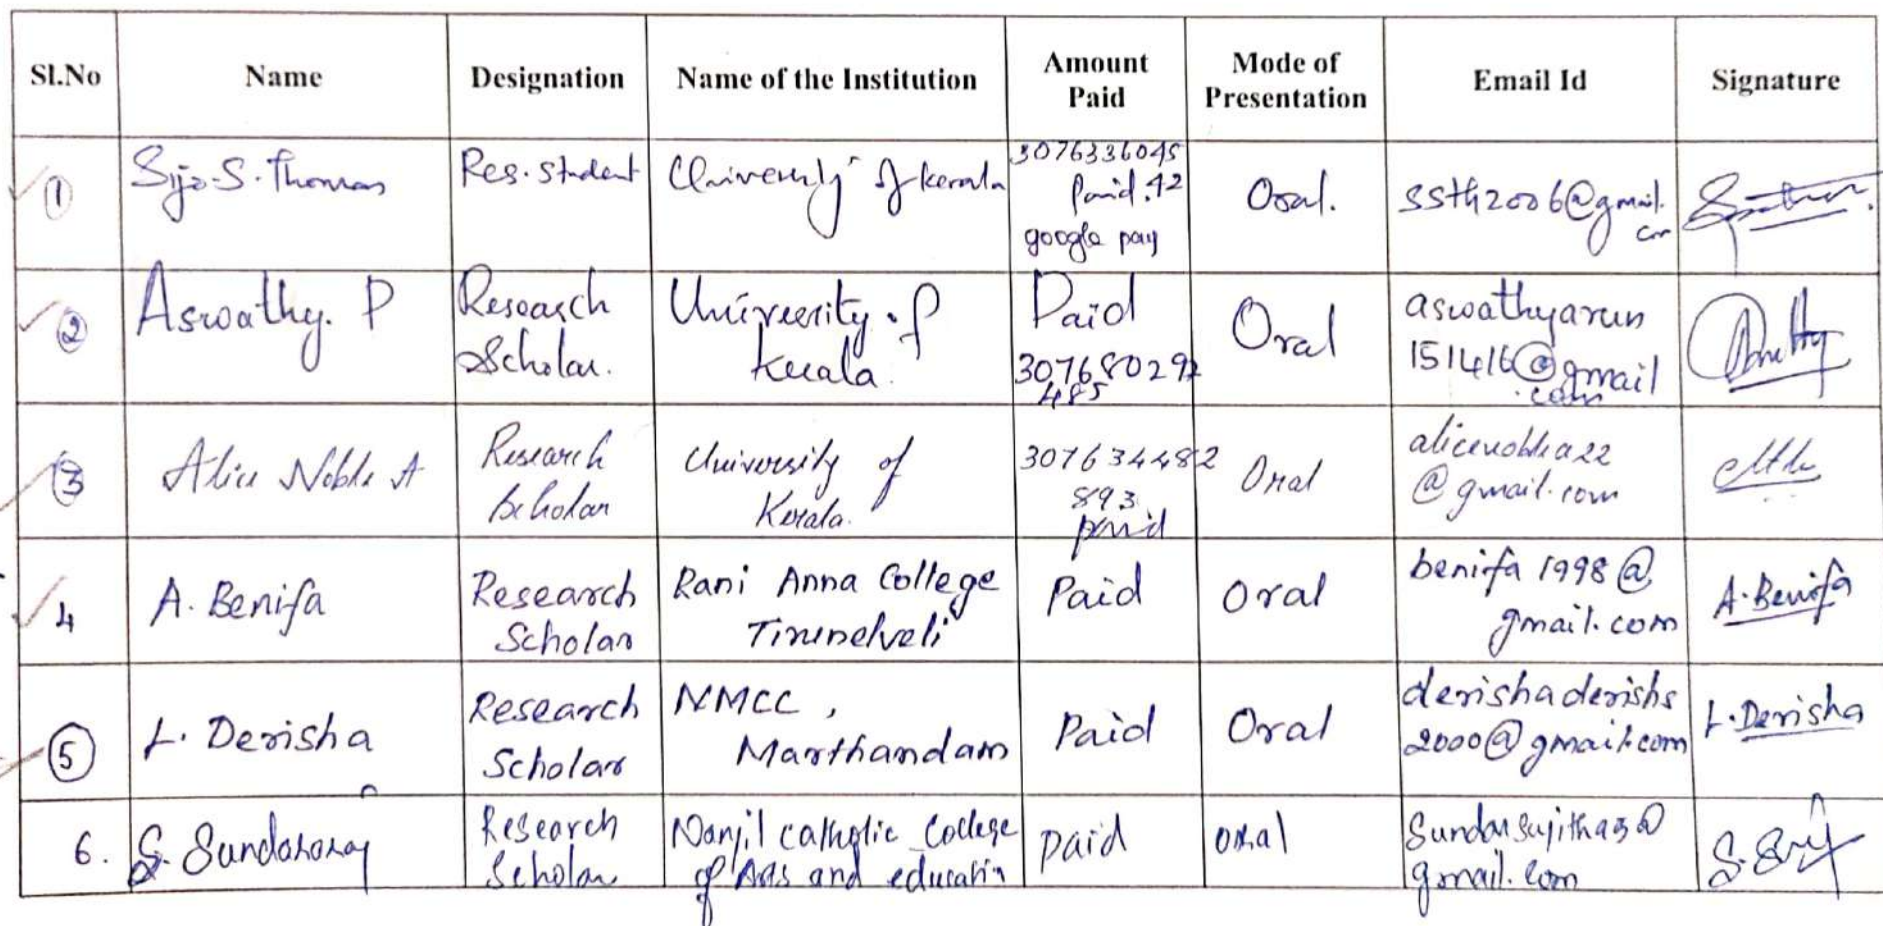 Sl.No Name Designation Name of the Institution Amount Paid Mode of Presentation Email Id Signature
1 Sijo.S.Thomas Res.student University of kerala 3076336045 Paid.42 google pay Oral. ssth2006@gmail.com
2 Aswathy. P Research Scholar. University of Kerala Paid 307680292 485 Oral aswathyarun 151416@gmail.com
3 Alice Noble A Research Scholar University of Kerala. 3076344482 893 paid Oral @gmail.com
4 A. Benifa Research Scholar Rani Anna College Tirunelveli Paid Oral benifa1998@gmail.com A.Benifa
5 L. Derisha Research Scholar NMCC, Marthandam Paid Oral derishaderishs2000@gmail.com L.Derisha
6. S. Sundararaj Research Scholar Nanjil catholic College of Arts and education paid oral gmail.com